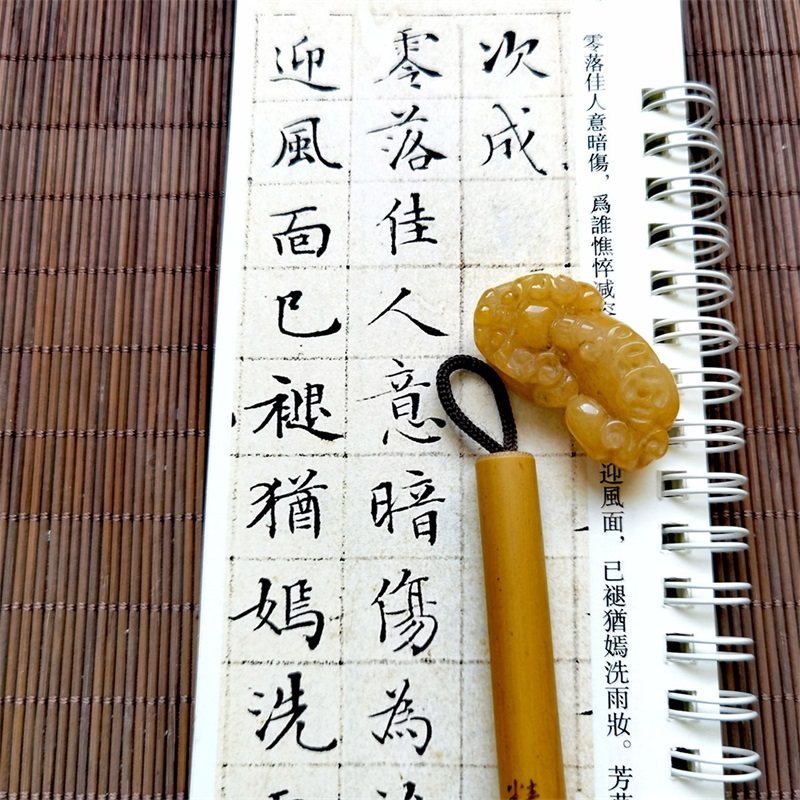 零落佳人意暗傷，爲誰憔悴減
迎風面，已褪猶嫣洗雨妝。芳
次成
零落佳人意暗傷為
迎風面已褪猶嫣洗